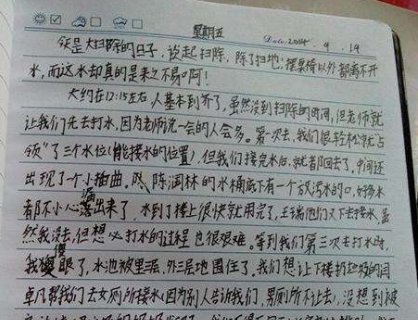 星期五 Date. 2014. 9. 19
今天是大扫除的日子，说起扫除，除了扫地，摆桌椅以外都离不开
水，而这水却真的是来之不易啊！
大约在12:15左右人基本到齐了，虽然没到扫除的时间，但老师就
让我们先去打水，因为老师说一会的人会多。第一次去，我们很轻松就占
领了三个水位（能接水的位置），但我们接完水后，就都回去了，中间还
出现了一个小插曲。陈润林的水桶底下有一个放污水的口，好多水
都不小心漏出来了，水到了楼上很快就用完了，王瑞他们又下去接水，虽
然我没去，但想必打水的过程也很艰难。等到我们第三次去打水时，
我傻眼了，水池被里三层，外三层地围住了，我们想让下楼扔垃圾的同
卓凡帮我们去女厕所接水（因为别人告诉我们，男厕所不让去），没想到被